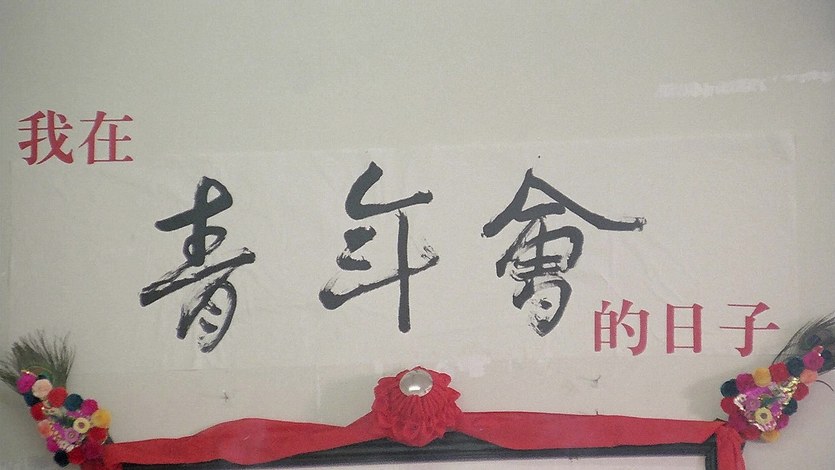 我在
青年會
的日子